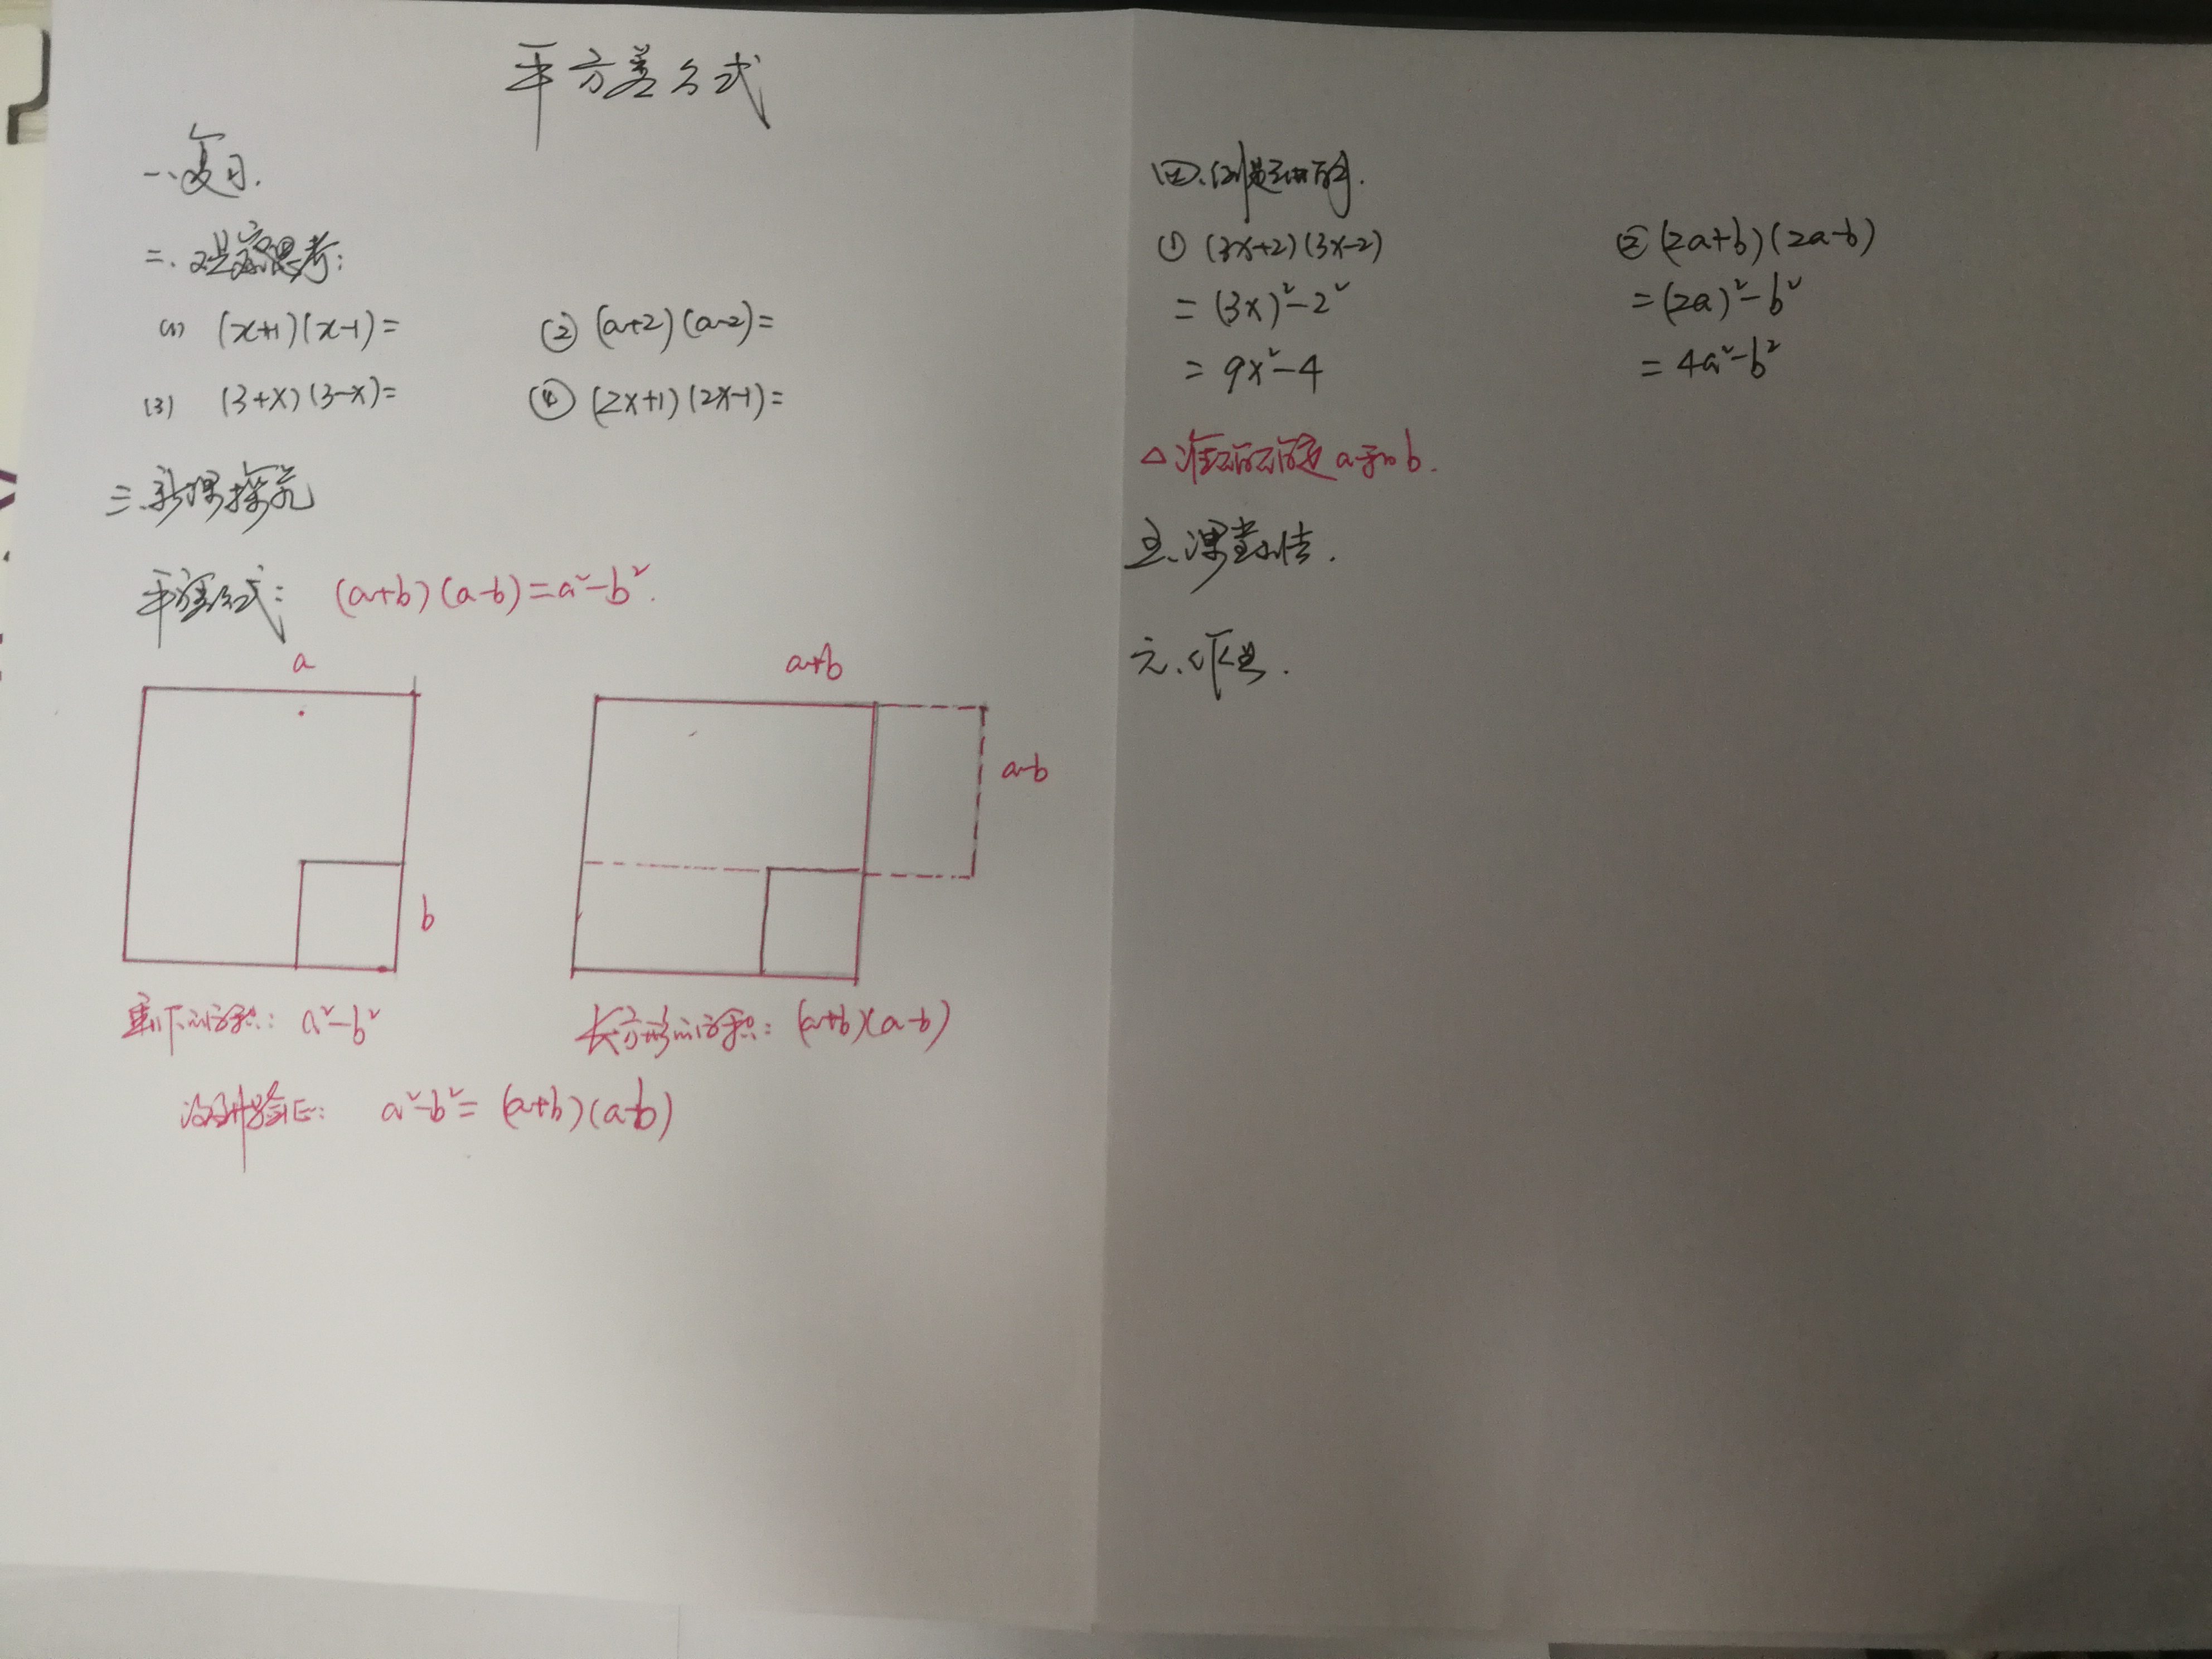 平方差公式
一、复习.
二、观察思考:
(1) (x+1)(x-1)=
② (a+2)(a-2)=
(3) (3+x)(3-x)=
④ (2x+1)(2x-1)=
三、新课探究
平方差公式: (a+b)(a-b)=a²-b².
a
b
剩下的面积: a²-b²
a+b
a-b
长方形的面积: (a+b)(a-b)
验证: a²-b²=(a+b)(a-b)
四、例题讲解.
① (3x+2)(3x-2)
= (3x)²-2²
= 9x²-4
② (2a+b)(2a-b)
= (2a)²-b²
= 4a²-b²
△ 准确确定a和b.
五、课堂小结.
六、作业.